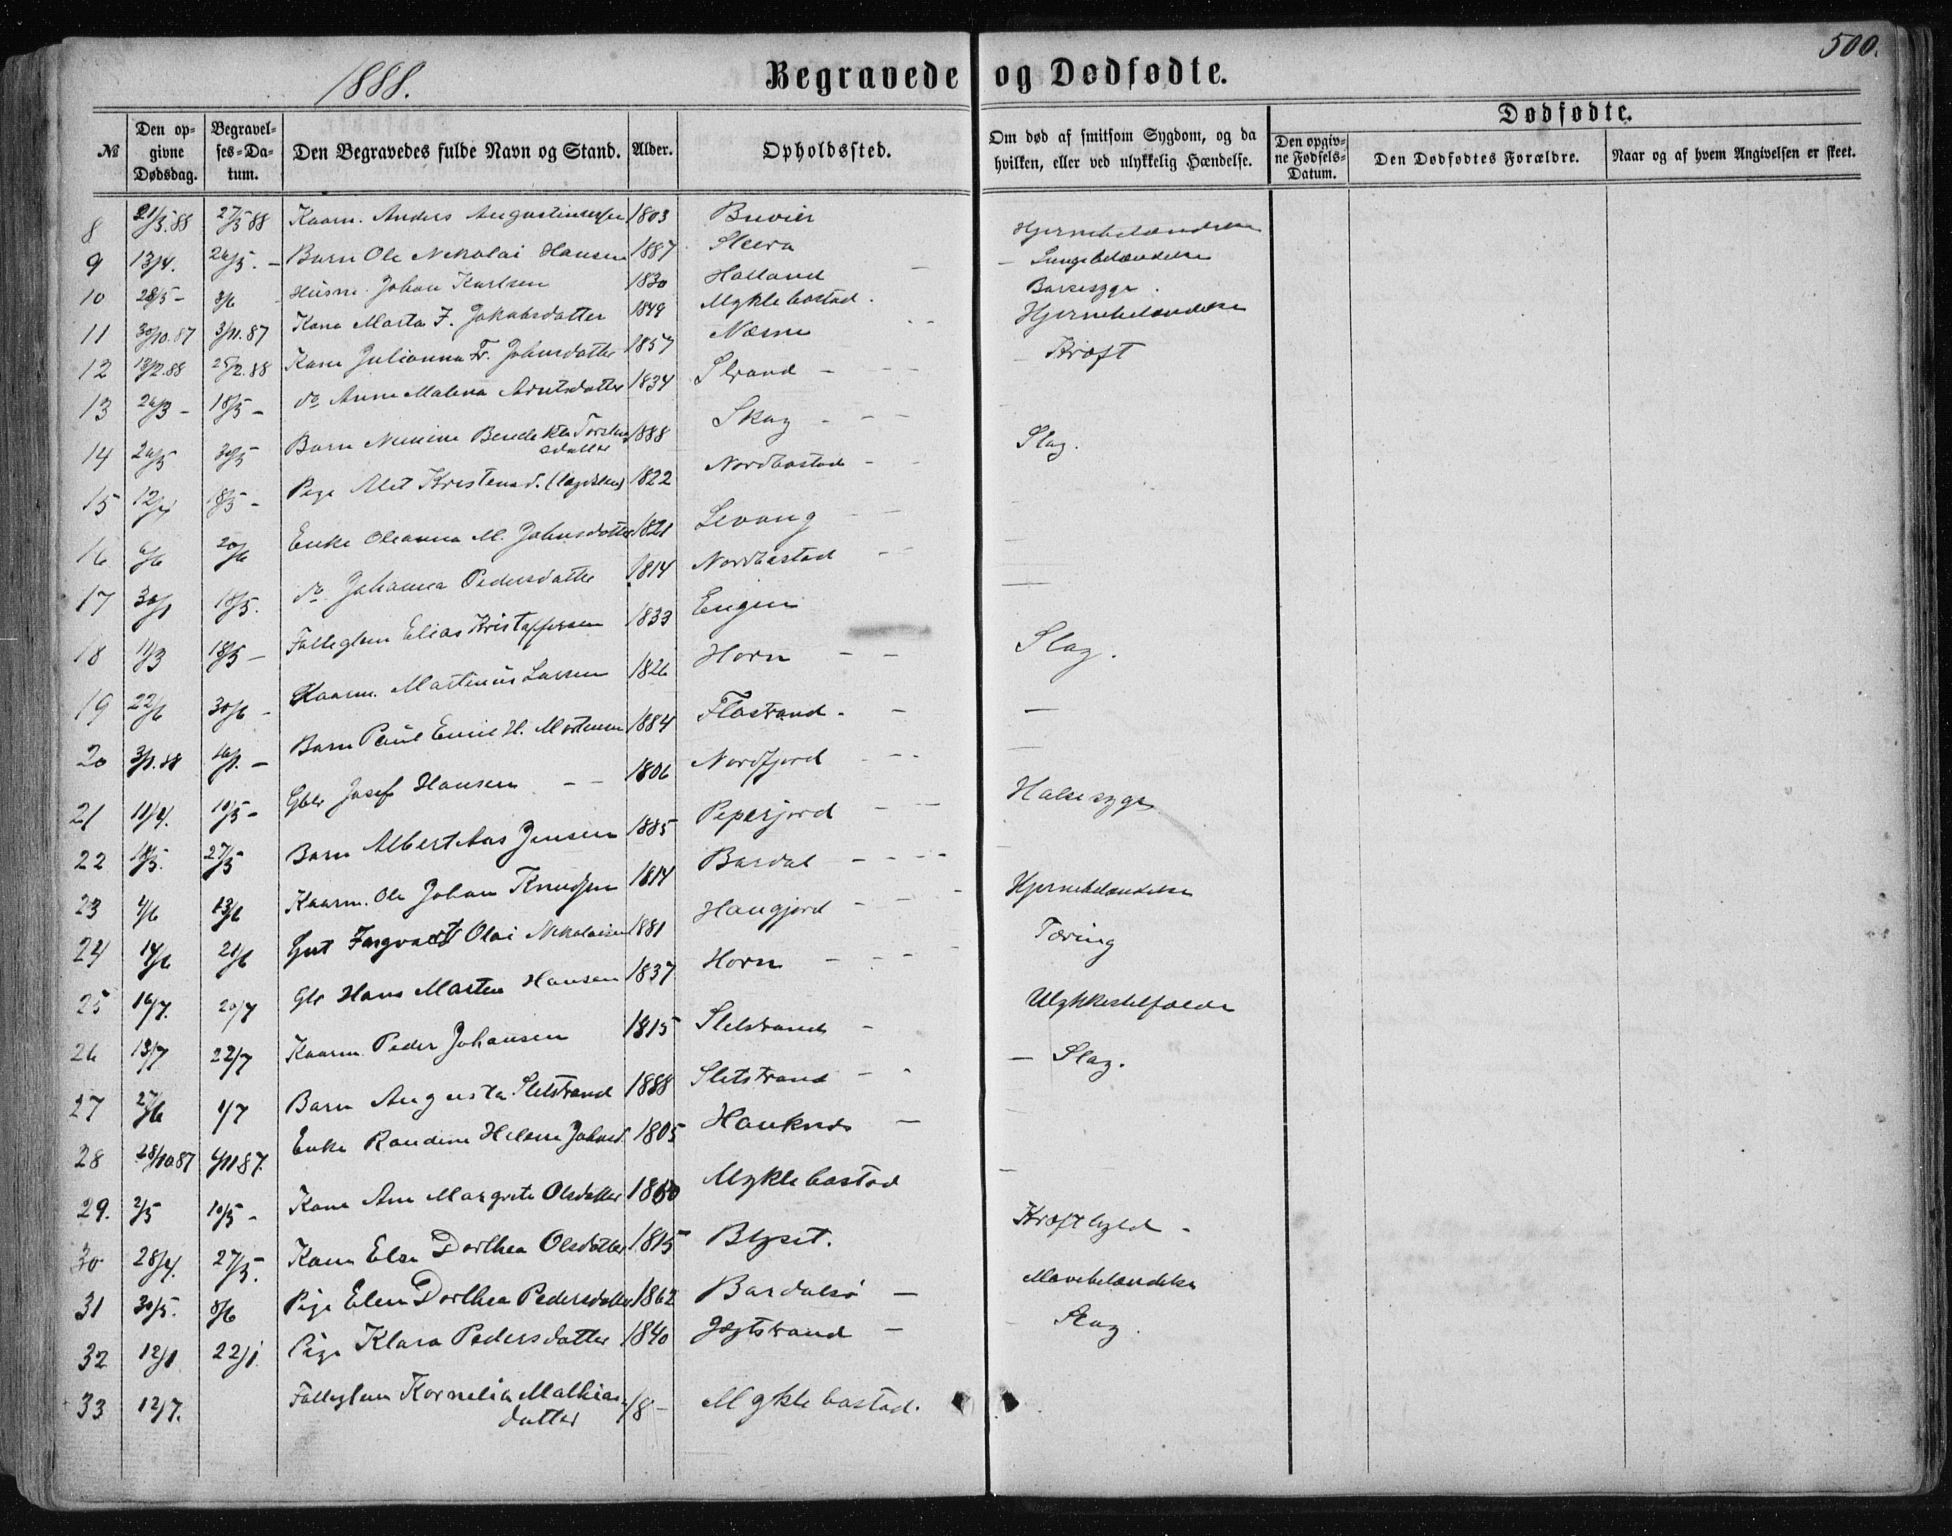 500.
1888.
Begravede og Dødfødte.
Dødfødte.
№ Den opgivne Dødsdag. Begravelses-Datum. Den Begravedes fulde Navn og Stand. Alder. Opholdssted. Om død af smitsom Sygdom, og da hvilken, eller ved ulykkelig Hændelse. Den opgivne Fødsels-Datum. Den Dødfødtes Forældre. Naar og af hvem Angivelsen er skeet.
8 21/5.88 27/5 88 Kaarm. Anders Augustinussen 1803
9 13/4. 26/5. – Barn Ole Nikolai Hansen 1887 Hjernebetændelse
10 28/5 – 3/6 Husm. Johan Karlsen 1830 Halland – Lungebetændelse
11 30/10.87 3/11.87 Kone Marta F. Jakobsdatter 1849 Myklebostad. Barselsyge.
12 13/2.88 25/2.88 Kone Julianna Fr. Johnsdatter 1857 Næsne Hjernebetændelse
13 26/3 – 18/5 – do Anne Malena Arntsdatter 1834 Strand – Kræft
14 24/5 30/5 Barn Nimine Benedikte Torstensdatter 1888 Skog
15 12/4 18/5 – Pige Alet Kristensd. (Lægdslem) 1822 Nordbostad Slag.
16 6/6 20/6 Enke Oleanna M. Johnsdatter 1821 Levang
17 30/1 18/5. do Johanna Pedersdatter 1814 Nordbostad
18 11/3 18/5 – Fattiglem Elias Kristoffersen 1833 Engen
19 22/6 30/6 – Kaarm. Martinus Larsen 1826 Horn Slag.
20 3/1.88 16/1. – Barn Paul Emil H. Mortensen 1884 Flostrand –
21 11/4. 10/5 – Gbr Josef Hansen 1806 Nordfjord
22 18/5. 27/5 Barn Albert Aas Jensen 1885 Peperjord Halsesyge
23 4/6 13/6 Kaarm. Ole Johan Knudsen 1814 Bardal
24 14/6 21/6 Gut Ingvart Olai Nikolaisen 1881 Haugjord Hjernebetændelse
25 16/7. 20/7 Gbr Hans Marten Hansen 1837 Horn Tæring
26 13/7 22/7 Kaarm. Peder Johansen 1815 Sletstrand Ulykkestilfælde
27 27/6 1/7 Barn Augusta Sletstrand 1888 Sletstrand – Slag.
28 28/10 87 6/11 87. Enke Randine Helene Johnsd. 1805 Hauknes
29. 2/5 10/5 – Kone Ane Margrete Olsdatter 1860 Myklebostad
30 28/4. 27/5. Kone Else Dorthea Olsdatter 1815 Blyset. Kræftbyld –
31 30/5. 8/6 Pige Elen Dorthea Pedersdatter 1862 Bardalsø – Mavebetændelse
32 12/1 22/1 Pige Klara Pedersdatter 1840 Jægtstrand – Slag.
33 12/7. Fattiglem Kornelia Mathiasdatter 18– Myklebostad.